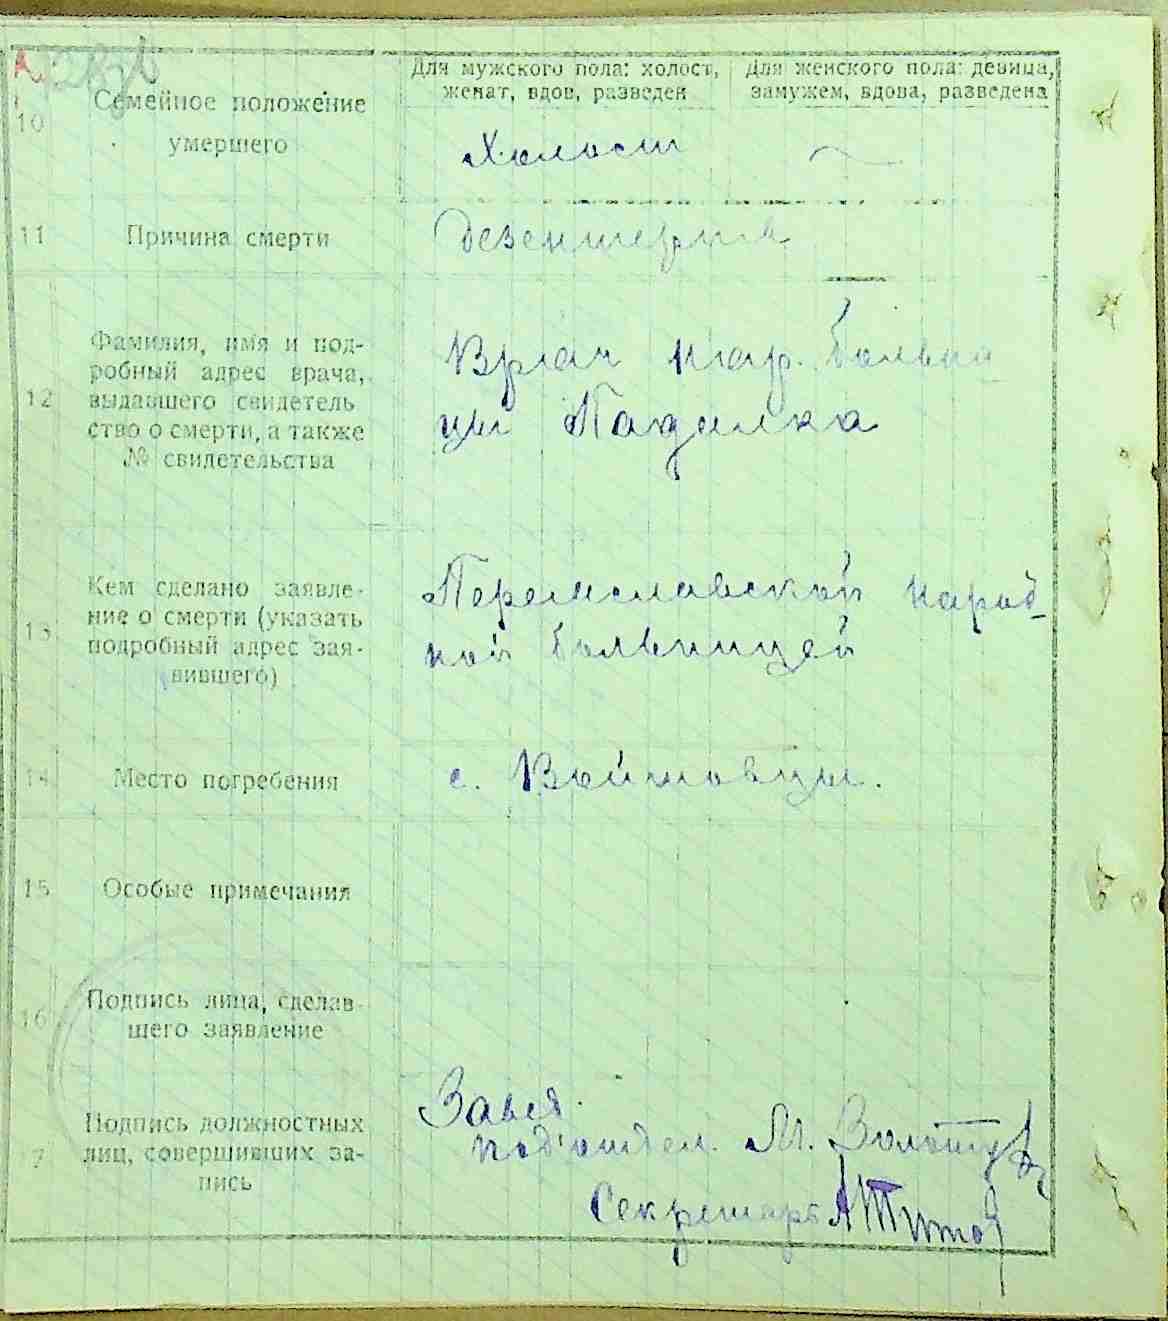 Для мужского пола: холост,
женат, вдов, разведен
Для женского пола: девица,
замужем, вдова, разведена
10
Семейное положение
умершего
Холост
11
Причина смерти
Дезентерия
12
Фамилия, имя и под-
робный адрес врача,
выдавшего свидетель
ство о смерти, а также
№ свидетельства
Врач нар. больни
цы
13
Кем сделано заявле-
ние о смерти (указать
подробный адрес зая-
вившего)
Переяславской народ-
ной больницей
14
Место погребения
с. Войтовцы.
15
Особые примечания
16
Подпись лица, сделав-
шего заявление
7
Подпись должностных
лиц, совершивших за-
пись
Завед.
под'отдел. М.
Секретарь